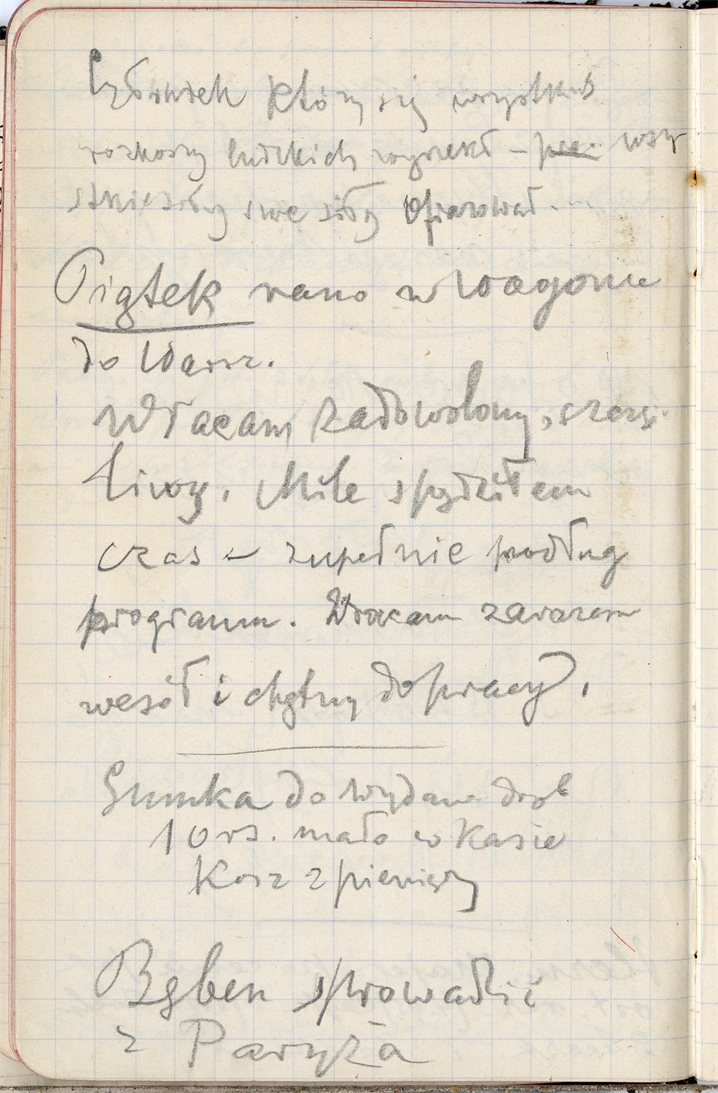 Człowiek który się wszystkich
rozkoszy ludzkich wyrzekł – wszy
stkie siły swe ofiarował...
Piątek rano w wagonie
do Warsz.
Wracam zadowolony, szczęś
liwy. Mile spędziłem
czas – zupełnie podług
programu. Wracam zarazem
wesół i chętny do pracy.
Sumka do wydaw. drob
10 rs. mało w kasie
Kosz z pieniędzy
Bęben sprowadzić
z Paryża